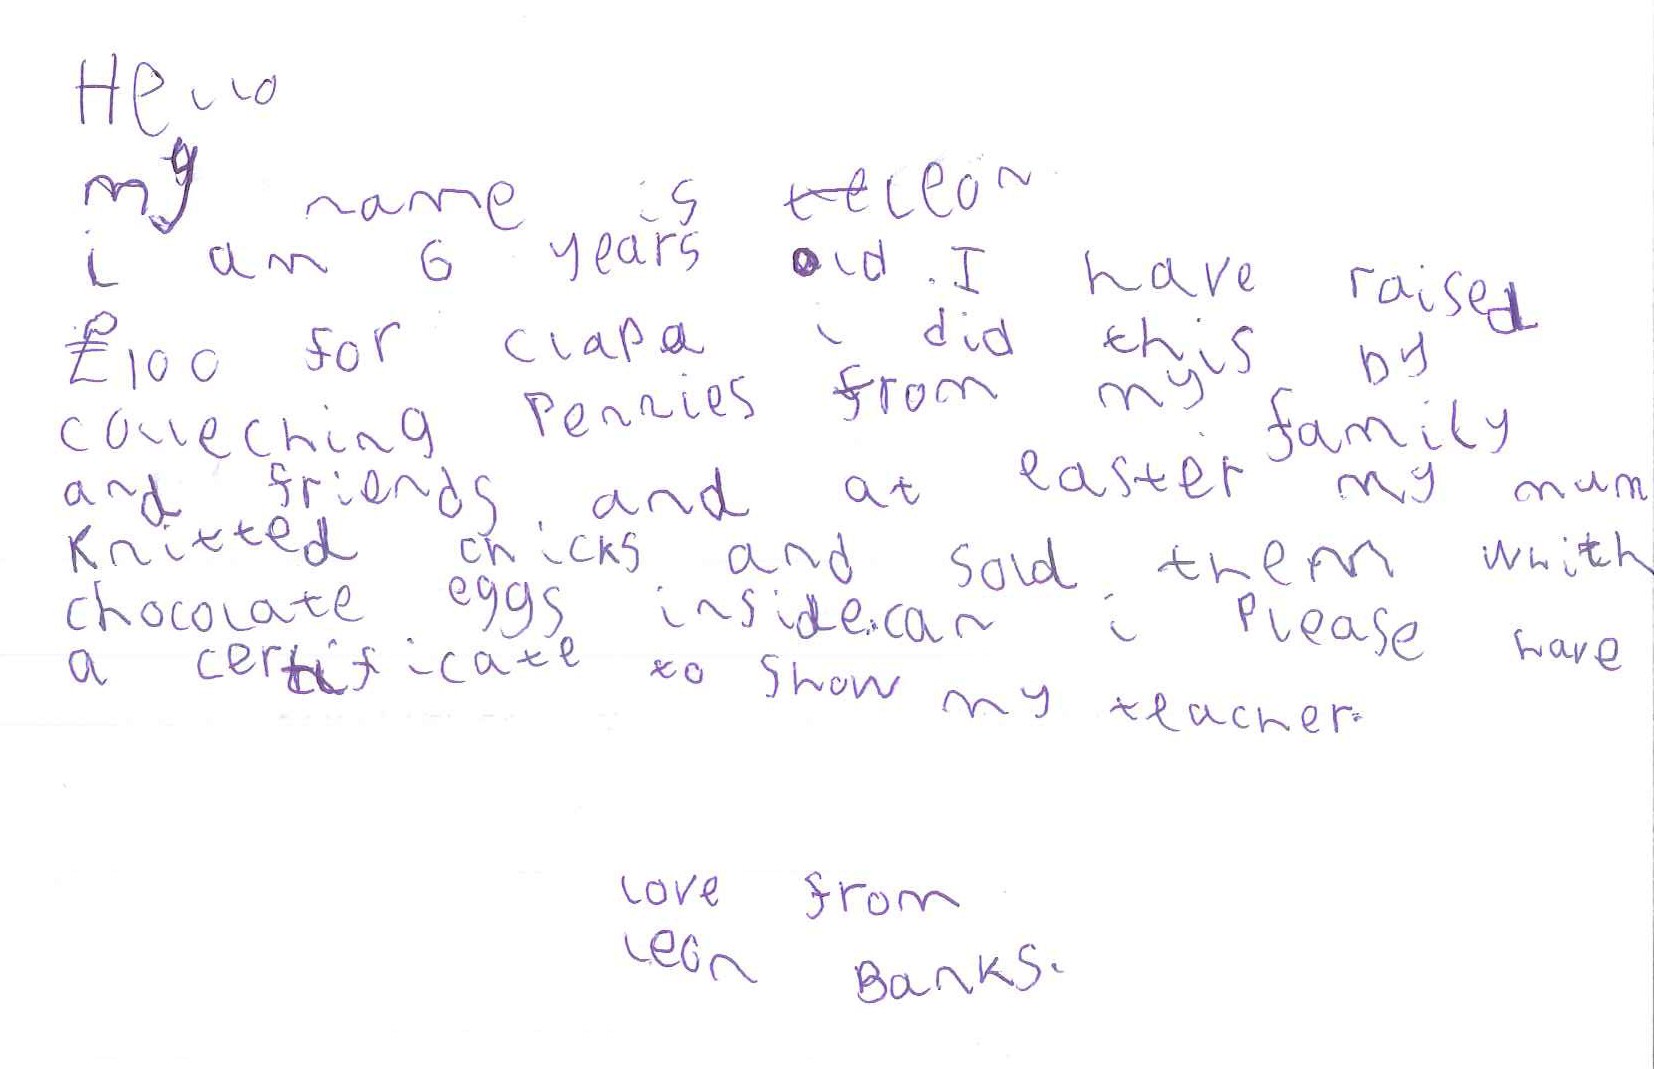 Hello
my name is leon
i am 6 years old. I have raised
£100 for clapa i did this by
colleching Pennies from my family
and friends. and at easter my mum
Knitted chicks and sold them whith
chocolate eggs inside. can i Please have
a certificate to show my teacher.
love from
leon Banks.